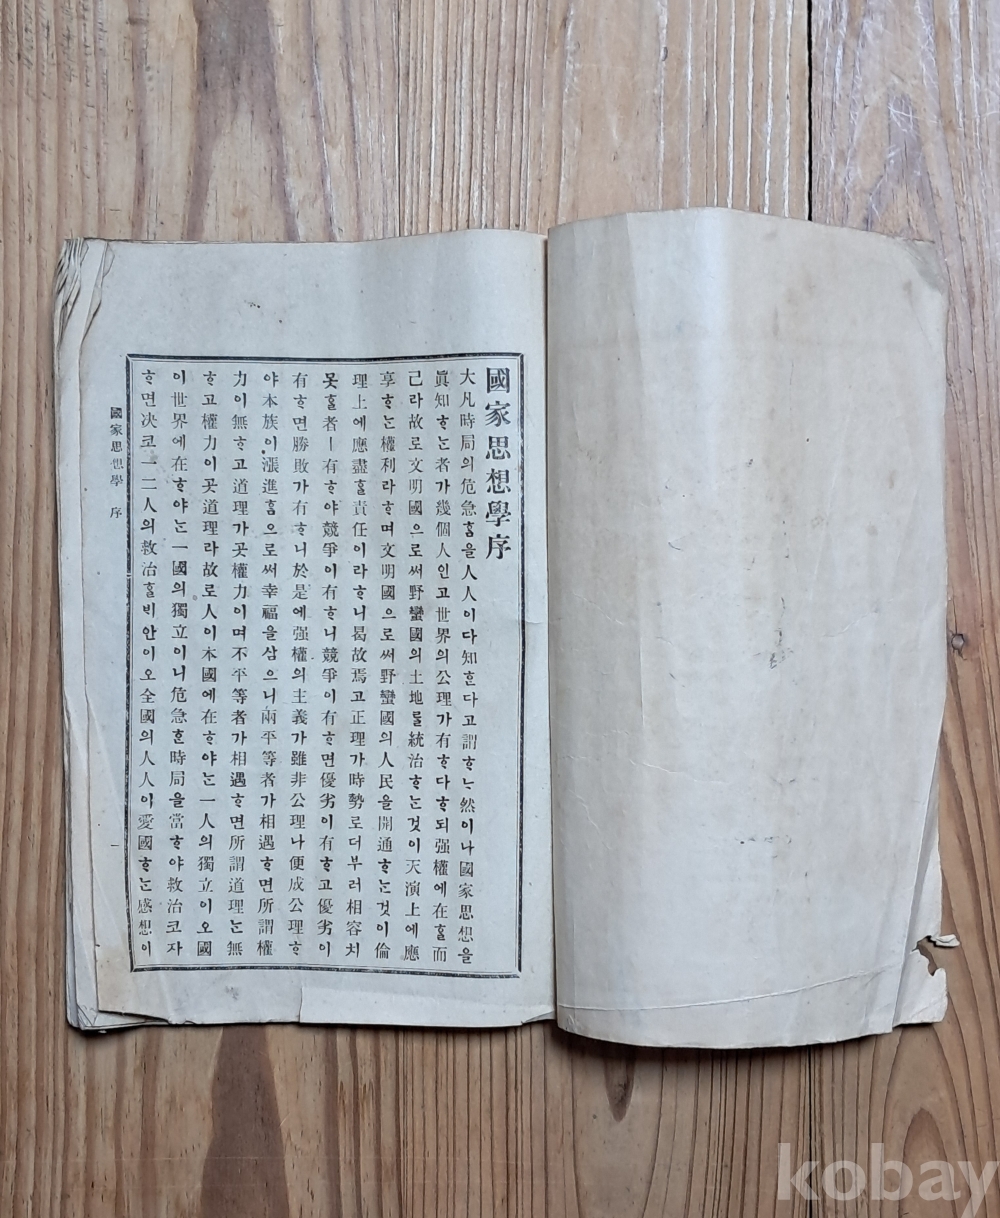 國家思想學序
大凡時局의危急ᄒᆞᆷ을人人이다知ᄒᆞᆫ다고謂ᄒᆞᄂᆞ然이나國家思想을
眞知ᄒᆞᄂᆞᆫ者가幾個人인고世界의公理가有ᄒᆞ다ᄒᆞ되强權에在ᄒᆞᆯ而
己라故로文明國으로써野蠻國의土地를統治ᄒᆞᄂᆞᆫ것이天演上에應
享ᄒᆞᄂᆞᆫ權利라ᄒᆞ며文明國으로써野蠻國의人民을開通ᄒᆞᄂᆞᆫ것이倫
理上에應盡ᄒᆞᆯ責任이라ᄒᆞ니曷故焉고正理가時勢로더부러相容치
못ᄒᆞᆯ者ㅣ有ᄒᆞ야競爭이有ᄒᆞ니競爭이有ᄒᆞ면優劣이有ᄒᆞ고優劣이
有ᄒᆞ면勝敗가有ᄒᆞ니於是에强權의主義가雖非公理나便成公理ᄒᆞ
야本族이漲進ᄒᆞᆷ으로써幸福을삼으니兩平等者가相遇ᄒᆞ면所謂權
力이無ᄒᆞ고道理가곳權力이며不平等者가相遇ᄒᆞ면所謂道理ᄂᆞᆫ無
ᄒᆞ고權力이곳道理라故로人이本國에在ᄒᆞ야ᄂᆞᆫ一人의獨立이오國
이世界에在ᄒᆞ야ᄂᆞᆫ一國의獨立이니危急ᄒᆞᆫ時局을當ᄒᆞ야救治코자
ᄒᆞ면決코一二人의救治ᄒᆞᆯ빅안이오全國의人人이愛國ᄒᆞᄂᆞᆫ感想이
國家思想學 序
一
kobay